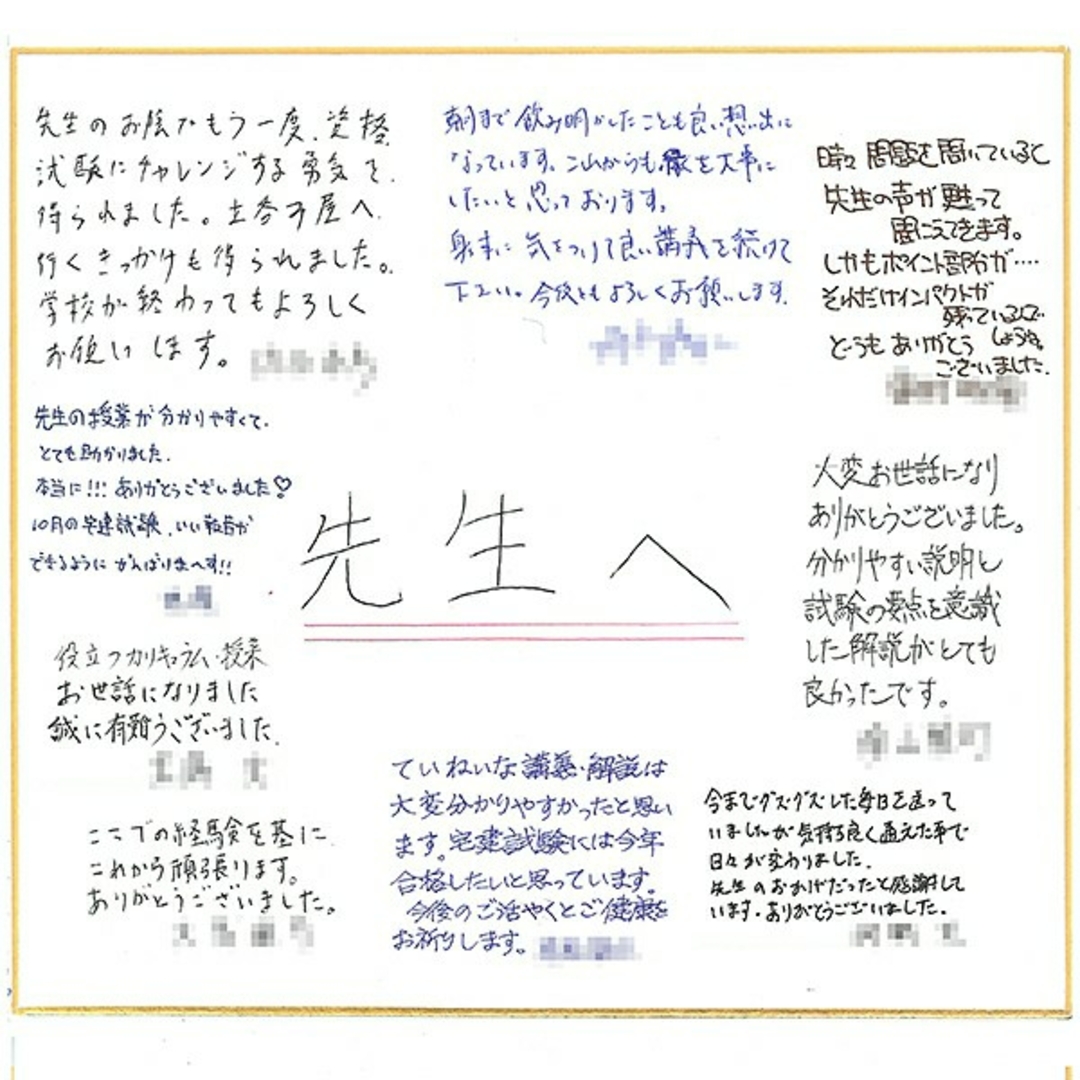 先生のお陰でもう一度、資格
試験にチャレンジする勇気を
得られました。土
行くきっかけも得られました。
学校が終わってもよろしく
お願いします。
朝まで飲み明かしたことも良い想い出に
なっています。これからも を大事に
したいと思っております。
身体に気をつけて良い講義を続けて
下さい。今後ともよろしくお願いします。
時々問題を聞いていると
先生の声が甦って
聞こえてきます。
しかもポイント部分が‥‥
それだけインパクトが
残っているんで
しょうね。
どうもありがとう
ございました。
先生の授業が分かりやすくて、
とても助かりました。
本当に!!! ありがとうございました♡
10月の宅建試験、いい報告が
できるようにがんばりまーす!!
先生へ
大変お世話になり
ありがとうございました。
分かりやすい説明と
試験の要点を意識
した解説がとても
良かったです。
役立つカリキュラム・授業
お世話になりました
誠に有難うございました。
ていねいな講義・解説は
大変分かりやすかったと思い
ます。宅建試験には今年
合格したいと思っています。
今後のご活やくとご健康を
お祈りします。
今までグズグズした毎日を送って
いましたが気持ち良く通えた事で
日々が変わりました。
先生のおかげだったと感謝して
います。ありがとうございました。
ここでの経験を基に
これから頑張ります。
ありがとうございました。